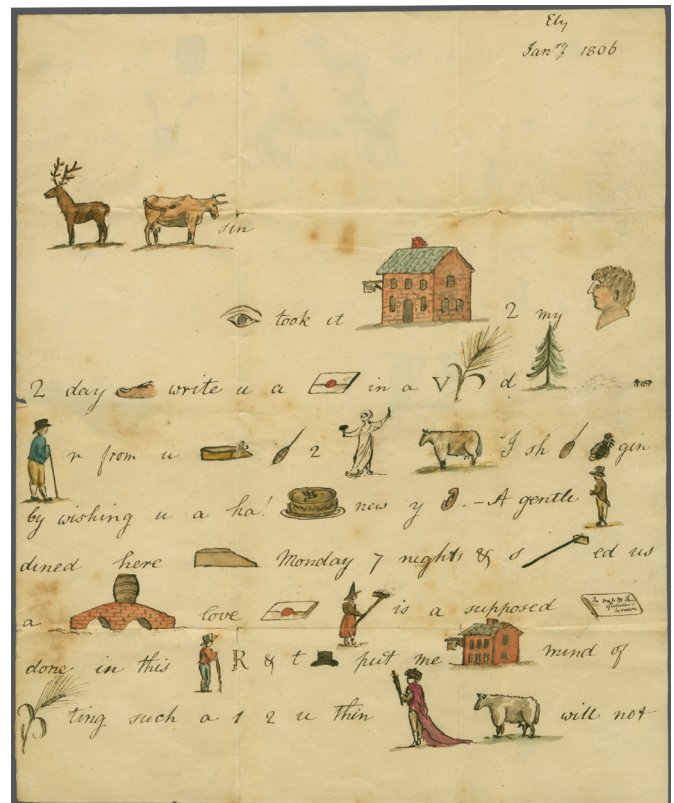 Ely
Jany 1806
sin
took it 2 my
2 day write u a in a V d
r from u 2 I sh gin
by wishing u a ha! new y . - A gentle
dined here Monday 7 nights & s ed us
a love is a supposed
done in this R & t put me mind of
ting such a 1 2 u thin will not